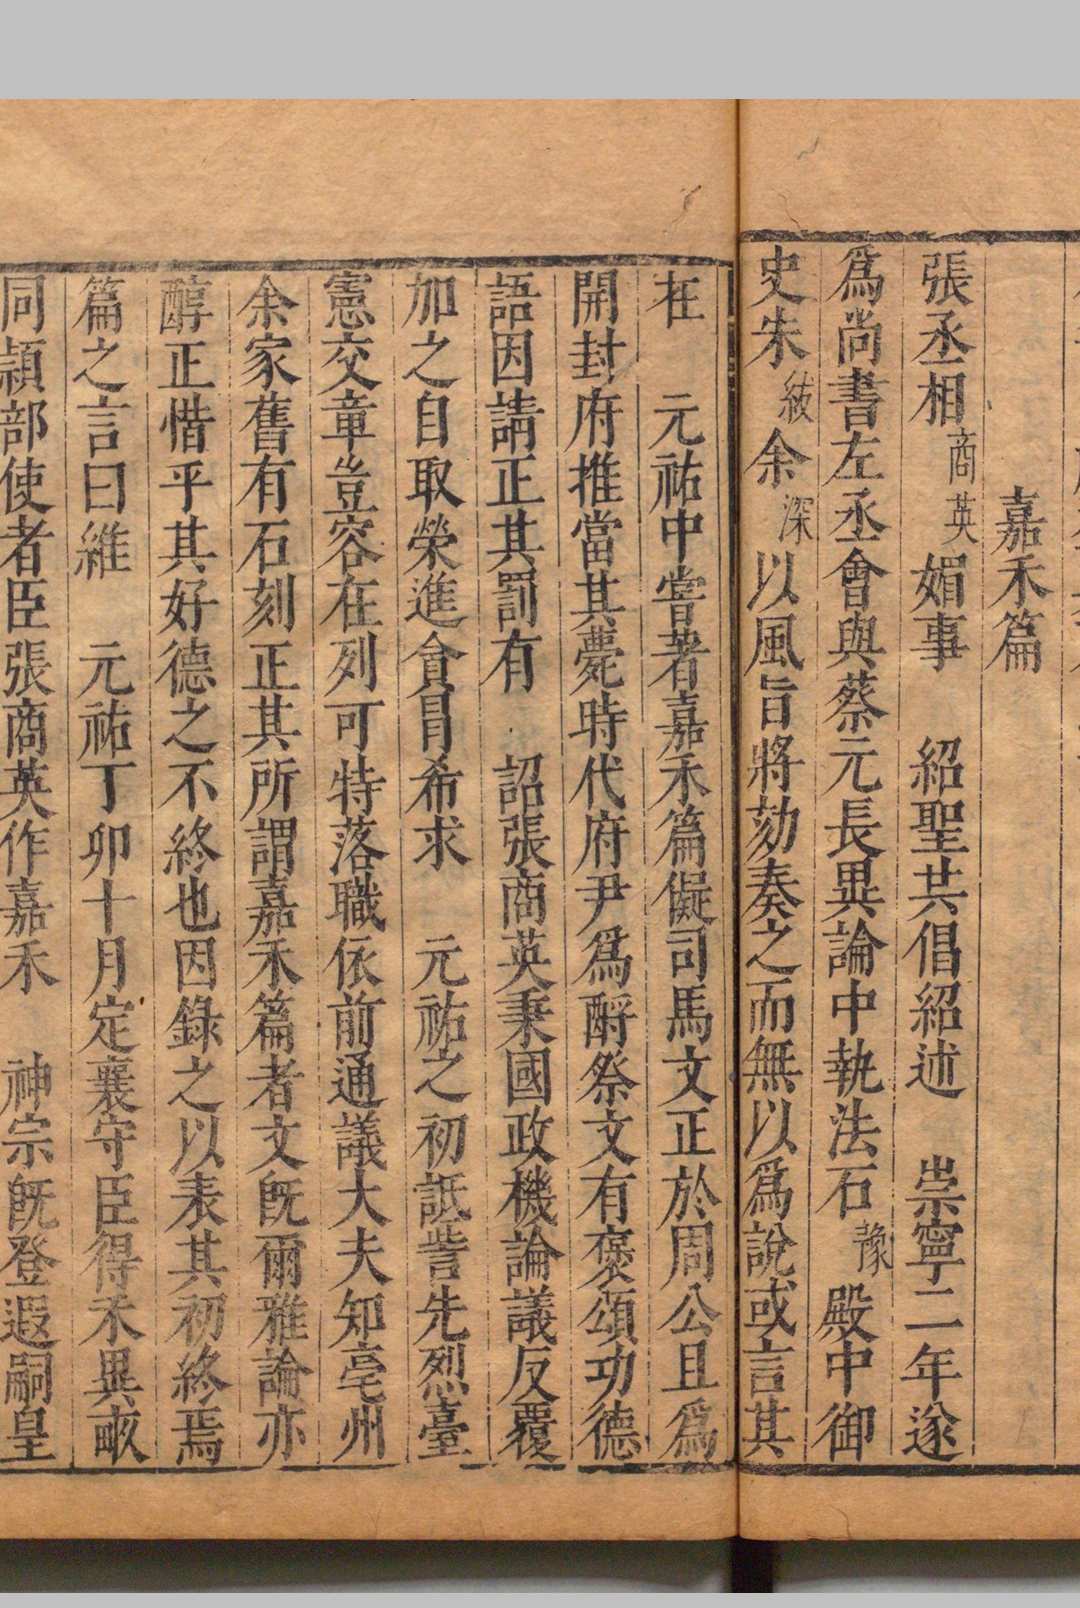 嘉禾篇
張丞相商英媚事　紹聖共倡紹述　崇寧二年遂
爲尚書左丞會與蔡元長異論中執法石豫殿中御
史朱紱余深以風旨將劾奏之而無以爲說或言其
在　元祐中嘗著嘉禾篇儗司馬文正於周公且爲
開封府推當其薨時代府尹爲酹祭文有褒頌功德
語因請正其罰有　詔張商英秉國政機論議反覆
加之自取榮進貪冒希求　元祐之初詆訾先烈臺
憲交章豈容在列可特落職依前通議大夫知亳州
余家舊有石刻正其所謂嘉禾篇者文旣爾雅論亦
醇正惜乎其好德之不終也因錄之以表其初終焉
篇之言曰維　元祐丁卯十月定襄守臣得禾異畝
同頴部使者臣張商英作嘉禾　神宗旣登遐嗣皇